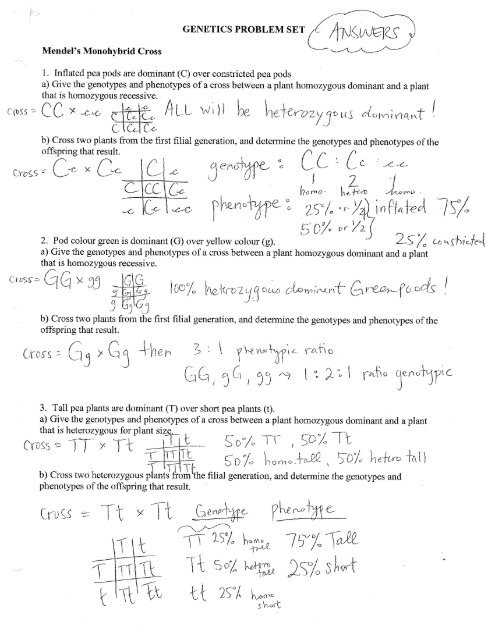 GENETICS PROBLEM SET ANSWERS
Mendel's Monohybrid Cross
1. Inflated pea pods are dominant (C) over constricted pea pods
a) Give the genotypes and phenotypes of a cross between a plant homozygous dominant and a plant
that is homozygous recessive.
Cross = CC × cc ALL will be heterozygous dominant!
c c
C Cc Cc
C Cc Cc
b) Cross two plants from the first filial generation, and determine the genotypes and phenotypes of the
offspring that result.
Cross = Cc × Cc genotype : CC : Cc cc
C c 1 2 1
C CC Cc homo. hetero homo.
c Cc cc phenotype : 25% or 1/4 } inflated 75%
50% or 1/2
25% constricted
2. Pod colour green is dominant (G) over yellow colour (g).
a) Give the genotypes and phenotypes of a cross between a plant homozygous dominant and a plant
that is homozygous recessive.
Cross = GG × gg 100% heterozygous dominant Green pods!
G G
g Gg Gg
g Gg Gg
b) Cross two plants from the first filial generation, and determine the genotypes and phenotypes of the
offspring that result.
Cross = Gg × Gg then 3 : 1 phenotypic ratio
GG, gG, gg → 1 : 2 : 1 ratio genotypic
3. Tall pea plants are dominant (T) over short pea plants (t).
a) Give the genotypes and phenotypes of a cross between a plant homozygous dominant and a plant
that is heterozygous for plant size.
Cross = TT × Tt 50% TT , 50% Tt
T t
T TT Tt 50% homo. tall, 50% hetero tall
T TT Tt
b) Cross two heterozygous plants from the filial generation, and determine the genotypes and
phenotypes of the offspring that result.
Cross = Tt × Tt Genotype Phenotype
TT 25% homo tall 75% Tall
T t
T TT Tt Tt 50% hetero tall 25% short
t Tt tt tt 25% homo short